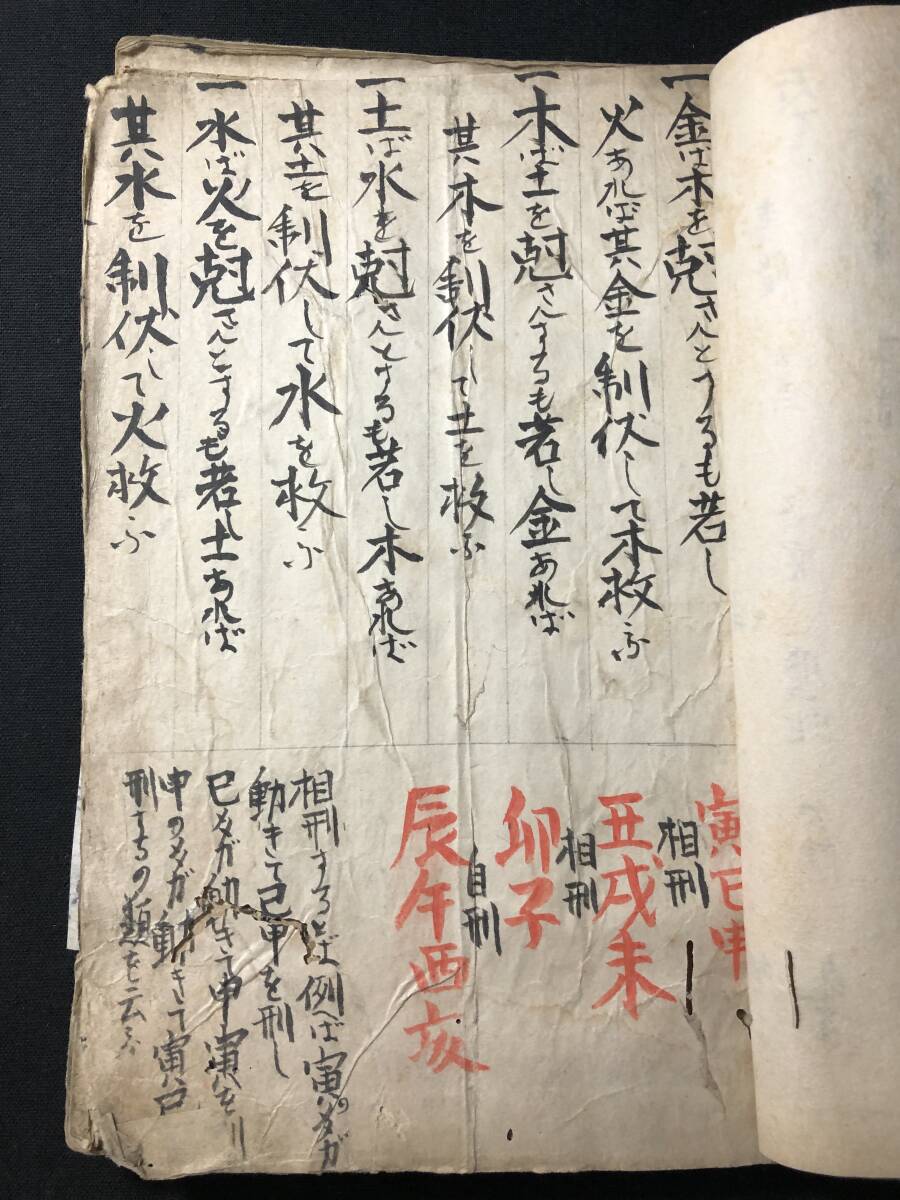 一金は木を尅さんとするも若し
火あれば其金を制伏して木救ふ
一木ば土を尅さんするも若し金あれば
其木を制伏して土を救ふ
一土ば水を尅さんとするも若し木あれば
其土を制伏して水を救ふ
一水ば火を尅さんとするも若し土あれば
其水を制伏して火救ふ
寅巳申
相刑
丑戌未
相刑
卯子
自刑
辰午酉亥
相刑するとば例へば寅の爻ガ
動きて巳申を刑し
巳爻ガ動きて申寅を
申の爻ガ動きて寅巳
刑するの類を云ふ